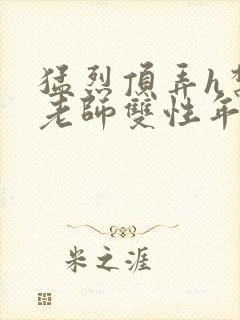 猛烈頂弄h
老師雙性年
米之涯